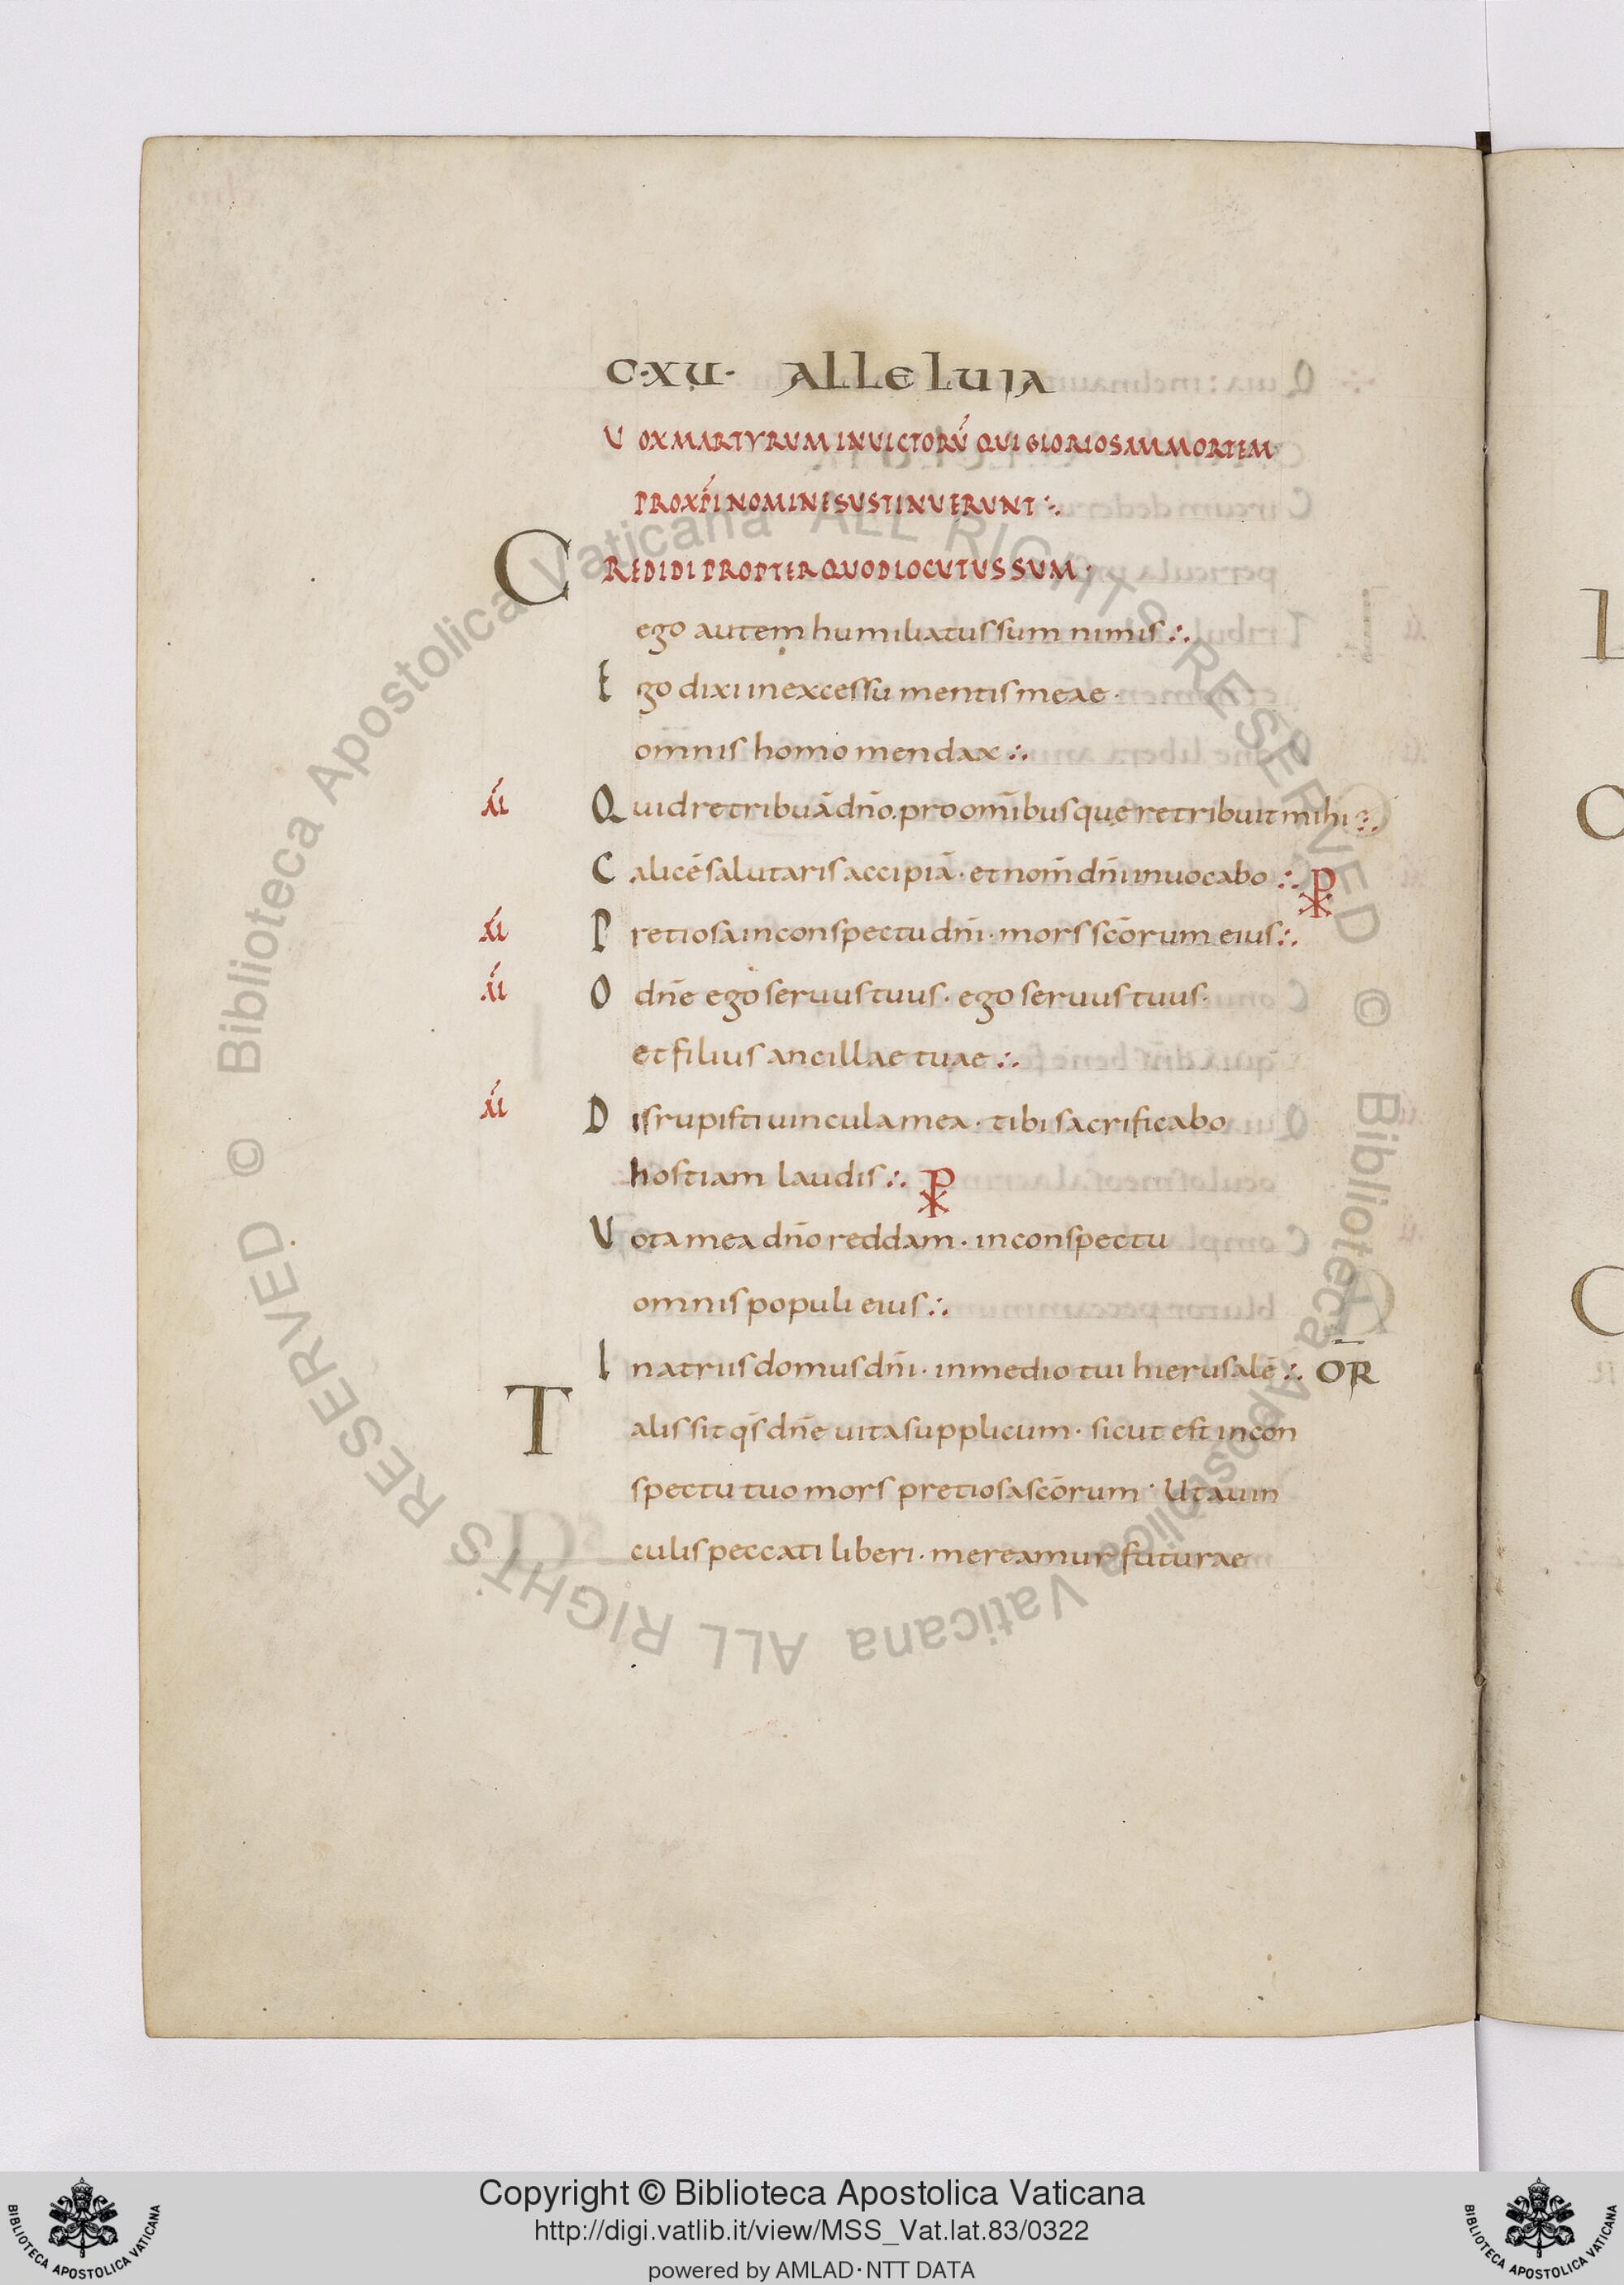 C·XU· ALLELUIA
VOX MARTYRUM INVICTORŪ QUI GLORIOSAM MORTEM
PRO XP̄I NOMINE SUSTINUERUNT :.
CREDIDI PROPTER QUOD LOCUTUS SUM ·
ego autem humiliatus sum nimis :.
Ego dixi in excessu mentis meae ·
omnis homo mendax :.
Quid retribuā dn̄o · pro om̄ibus quę retribuit mihi :.
Calicē salutaris accipiā · et nom̄ dn̄i inuocabo :. ⳩
Pretiosa in conspectu dn̄i · mors sc̄orum eius :.
O dn̄e ego seruus tuus · ego seruus tuus ·
et filius ancillae tuae :.
Disrupisti uincula mea · tibi sacrificabo
hostiam laudis :. ⳩
Vota mea dn̄o reddam · in conspectu
omnis populi eius :.
In atriis domus dn̄i · in medio tui hierusalē :. OR̄
Talis sit q̄s dn̄e uita supplicum · sicut est in con
spectu tuo mors pretiosa sc̄orum · Ut a uin
culis peccati liberi · mereamur futurae
© Biblioteca Apostolica Vaticana ALL RIGHTS RESERVED
© Biblioteca Apostolica Vaticana ALL RIGHTS RESERVED
Copyright © Biblioteca Apostolica Vaticana
http://digi.vatlib.it/view/MSS_Vat.lat.83/0322
powered by AMLAD·NTT DATA
BIBLIOTECA APOSTOLICA VATICANA
BIBLIOTECA APOSTOLICA VATICANA